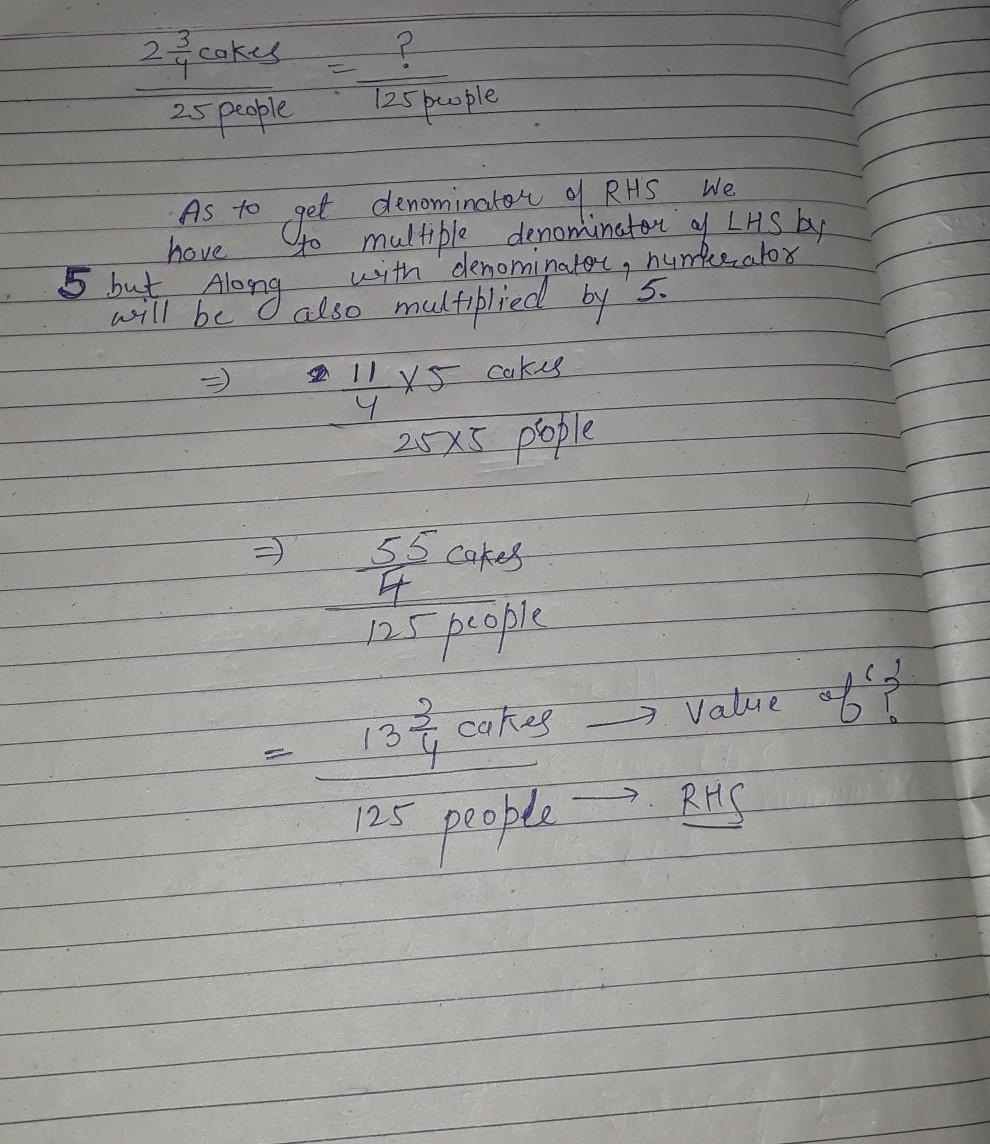 2 3/4 cakes / 25 people = ? / 125 people
As to get denominator of RHS We
have to multiple denominator of LHS by
5 but Along with denominator, numerator
will be also multiplied by 5.
⇒ 11/4 × 5 cakes
25×5 people
⇒ 55/4 cakes
125 people
= 13 3/4 cakes → Value of '?'
125 people → RHS